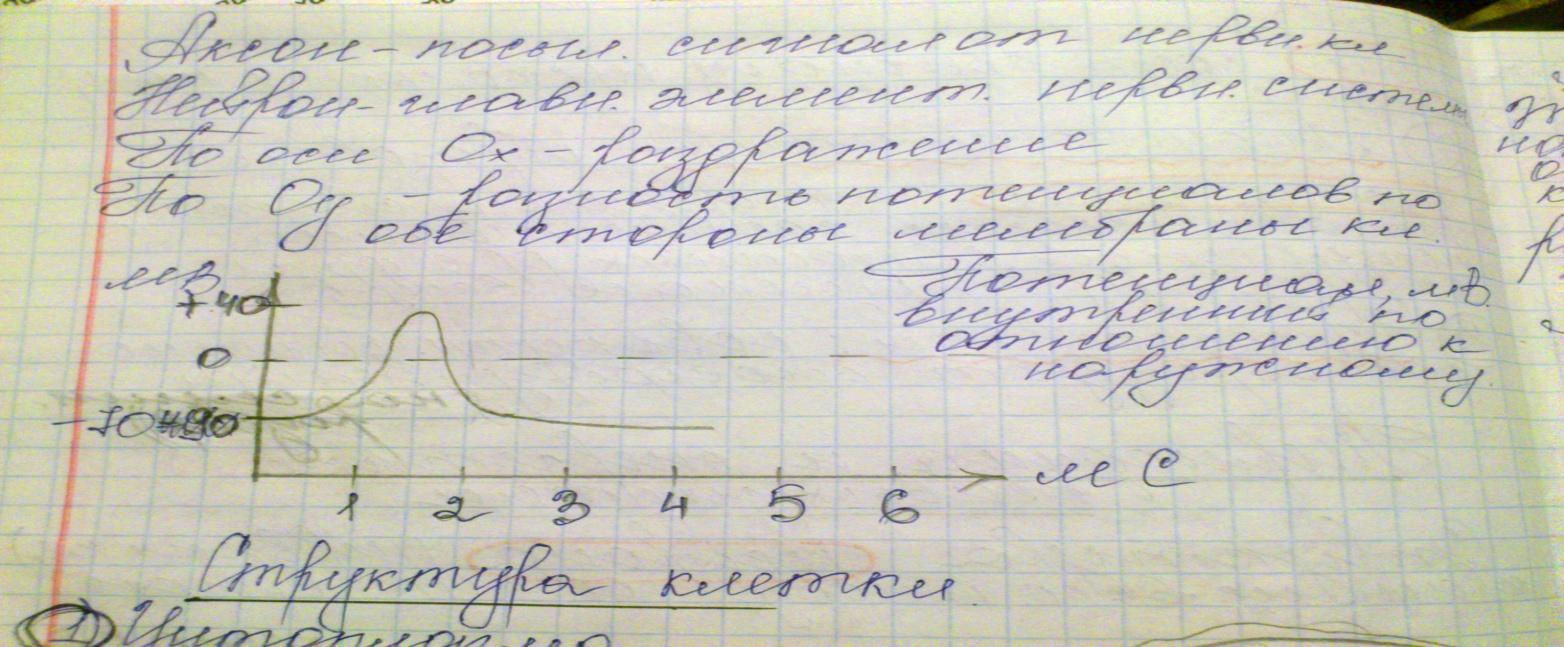 Аксон - посыл. сигнал от нервн. кл
Нейрон - главн. элемент. нервн. системы
По оси Ох - раздражение
По Оу - разность потенциалов по
обе стороны мембраны кл.
мВ
Потенциал, мВ.
внутренний по
отношению к
наружному.
+40
0
-70
мс
1 2 3 4 5 6
Структура клетки
1) Цитоплазма